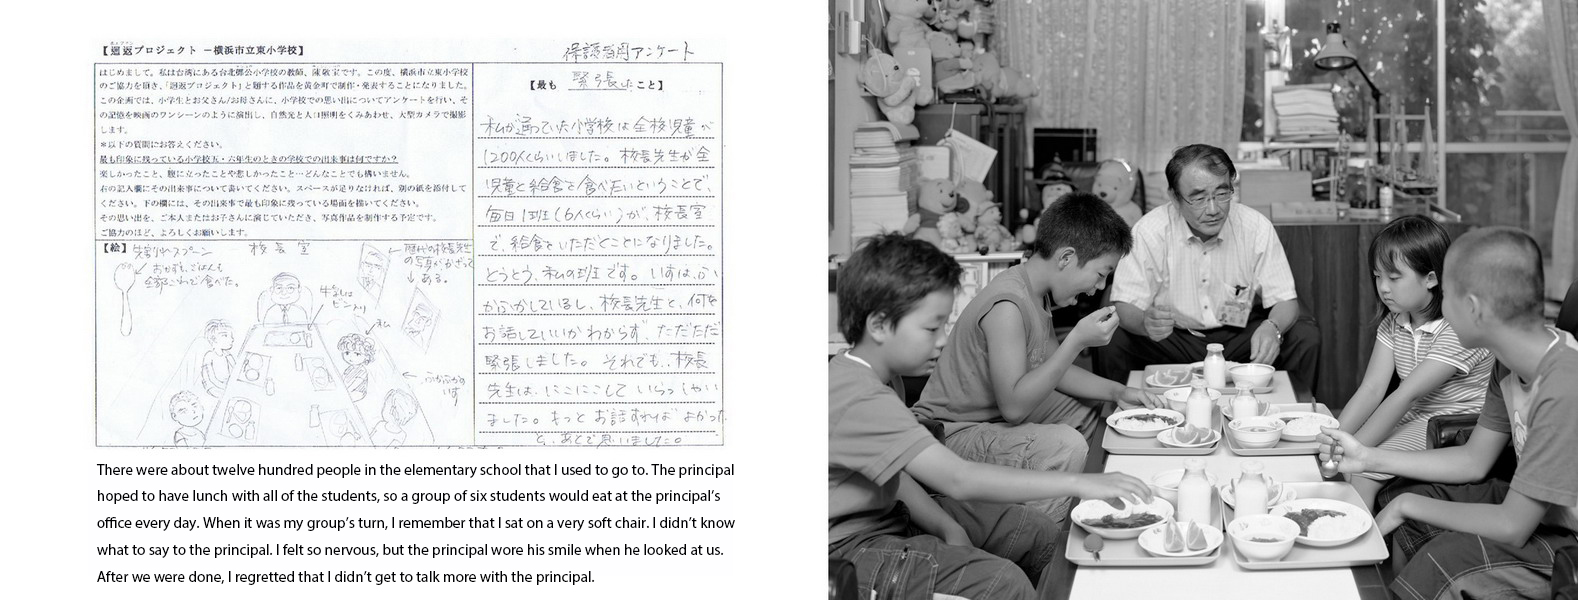 【廻返プロジェクト －横浜市立東小学校】
保護者用アンケート
はじめまして。私は台湾にある台北郷公小学校の教師、陳敬宝です。この度、横浜市立東小学校
のご協力を頂き、「廻返プロジェクト」と題する作品を黄金町で制作・発表することになりました。
この企画では、小学生とお父さん/お母さんに、小学校での思い出についてアンケートを行い、そ
の記憶を映画のワンシーンのように演出し、自然光と人口照明をくみあわせ、大型カメラで撮影
します。
＊以下の質問にお答えください。
最も印象に残っている小学校五・六年生のときの学校での出来事は何ですか？
楽しかったこと、腹に立ったことや悲しかったこと…どんなことでも構いません。
右の記入欄にその出来事について書いてください。スペースが足りなければ、別の紙を添付して
ください。下の欄には、その出来事で最も印象に残っている場面を描いてください。
その思い出を、ご本人またはお子さんに演じていただき、写真作品を制作する予定です。
ご協力のほど、よろしくお願いします。
【絵】
先割れスプーン
おかずも、ごはんも
全部これで食べた。
校長室
牛乳は
ビン入り
私
歴代の校長先生
の写真がかざって
ある。
ふかふかの
いす
【最も 緊張したこと】
私が通っていた小学校は全校児童が
1200人くらいいました。校長先生が全
児童と給食を食べたいということで、
毎日1班(6人くらい)が、校長室
で、給食をいただくことになりました。
とうとう、私の班です。いすは、ふ
かふかしているし、校長先生と、何を
お話していいかわからず、ただただ
緊張しました。それでも、校長
先生は、にこにこして いらっしゃい
ました。もっと お話すれば よかった
と、あとで思いました。
There were about twelve hundred people in the elementary school that I used to go to. The principal
hoped to have lunch with all of the students, so a group of six students would eat at the principal’s
office every day. When it was my group’s turn, I remember that I sat on a very soft chair. I didn’t know
what to say to the principal. I felt so nervous, but the principal wore his smile when he looked at us.
After we were done, I regretted that I didn’t get to talk more with the principal.